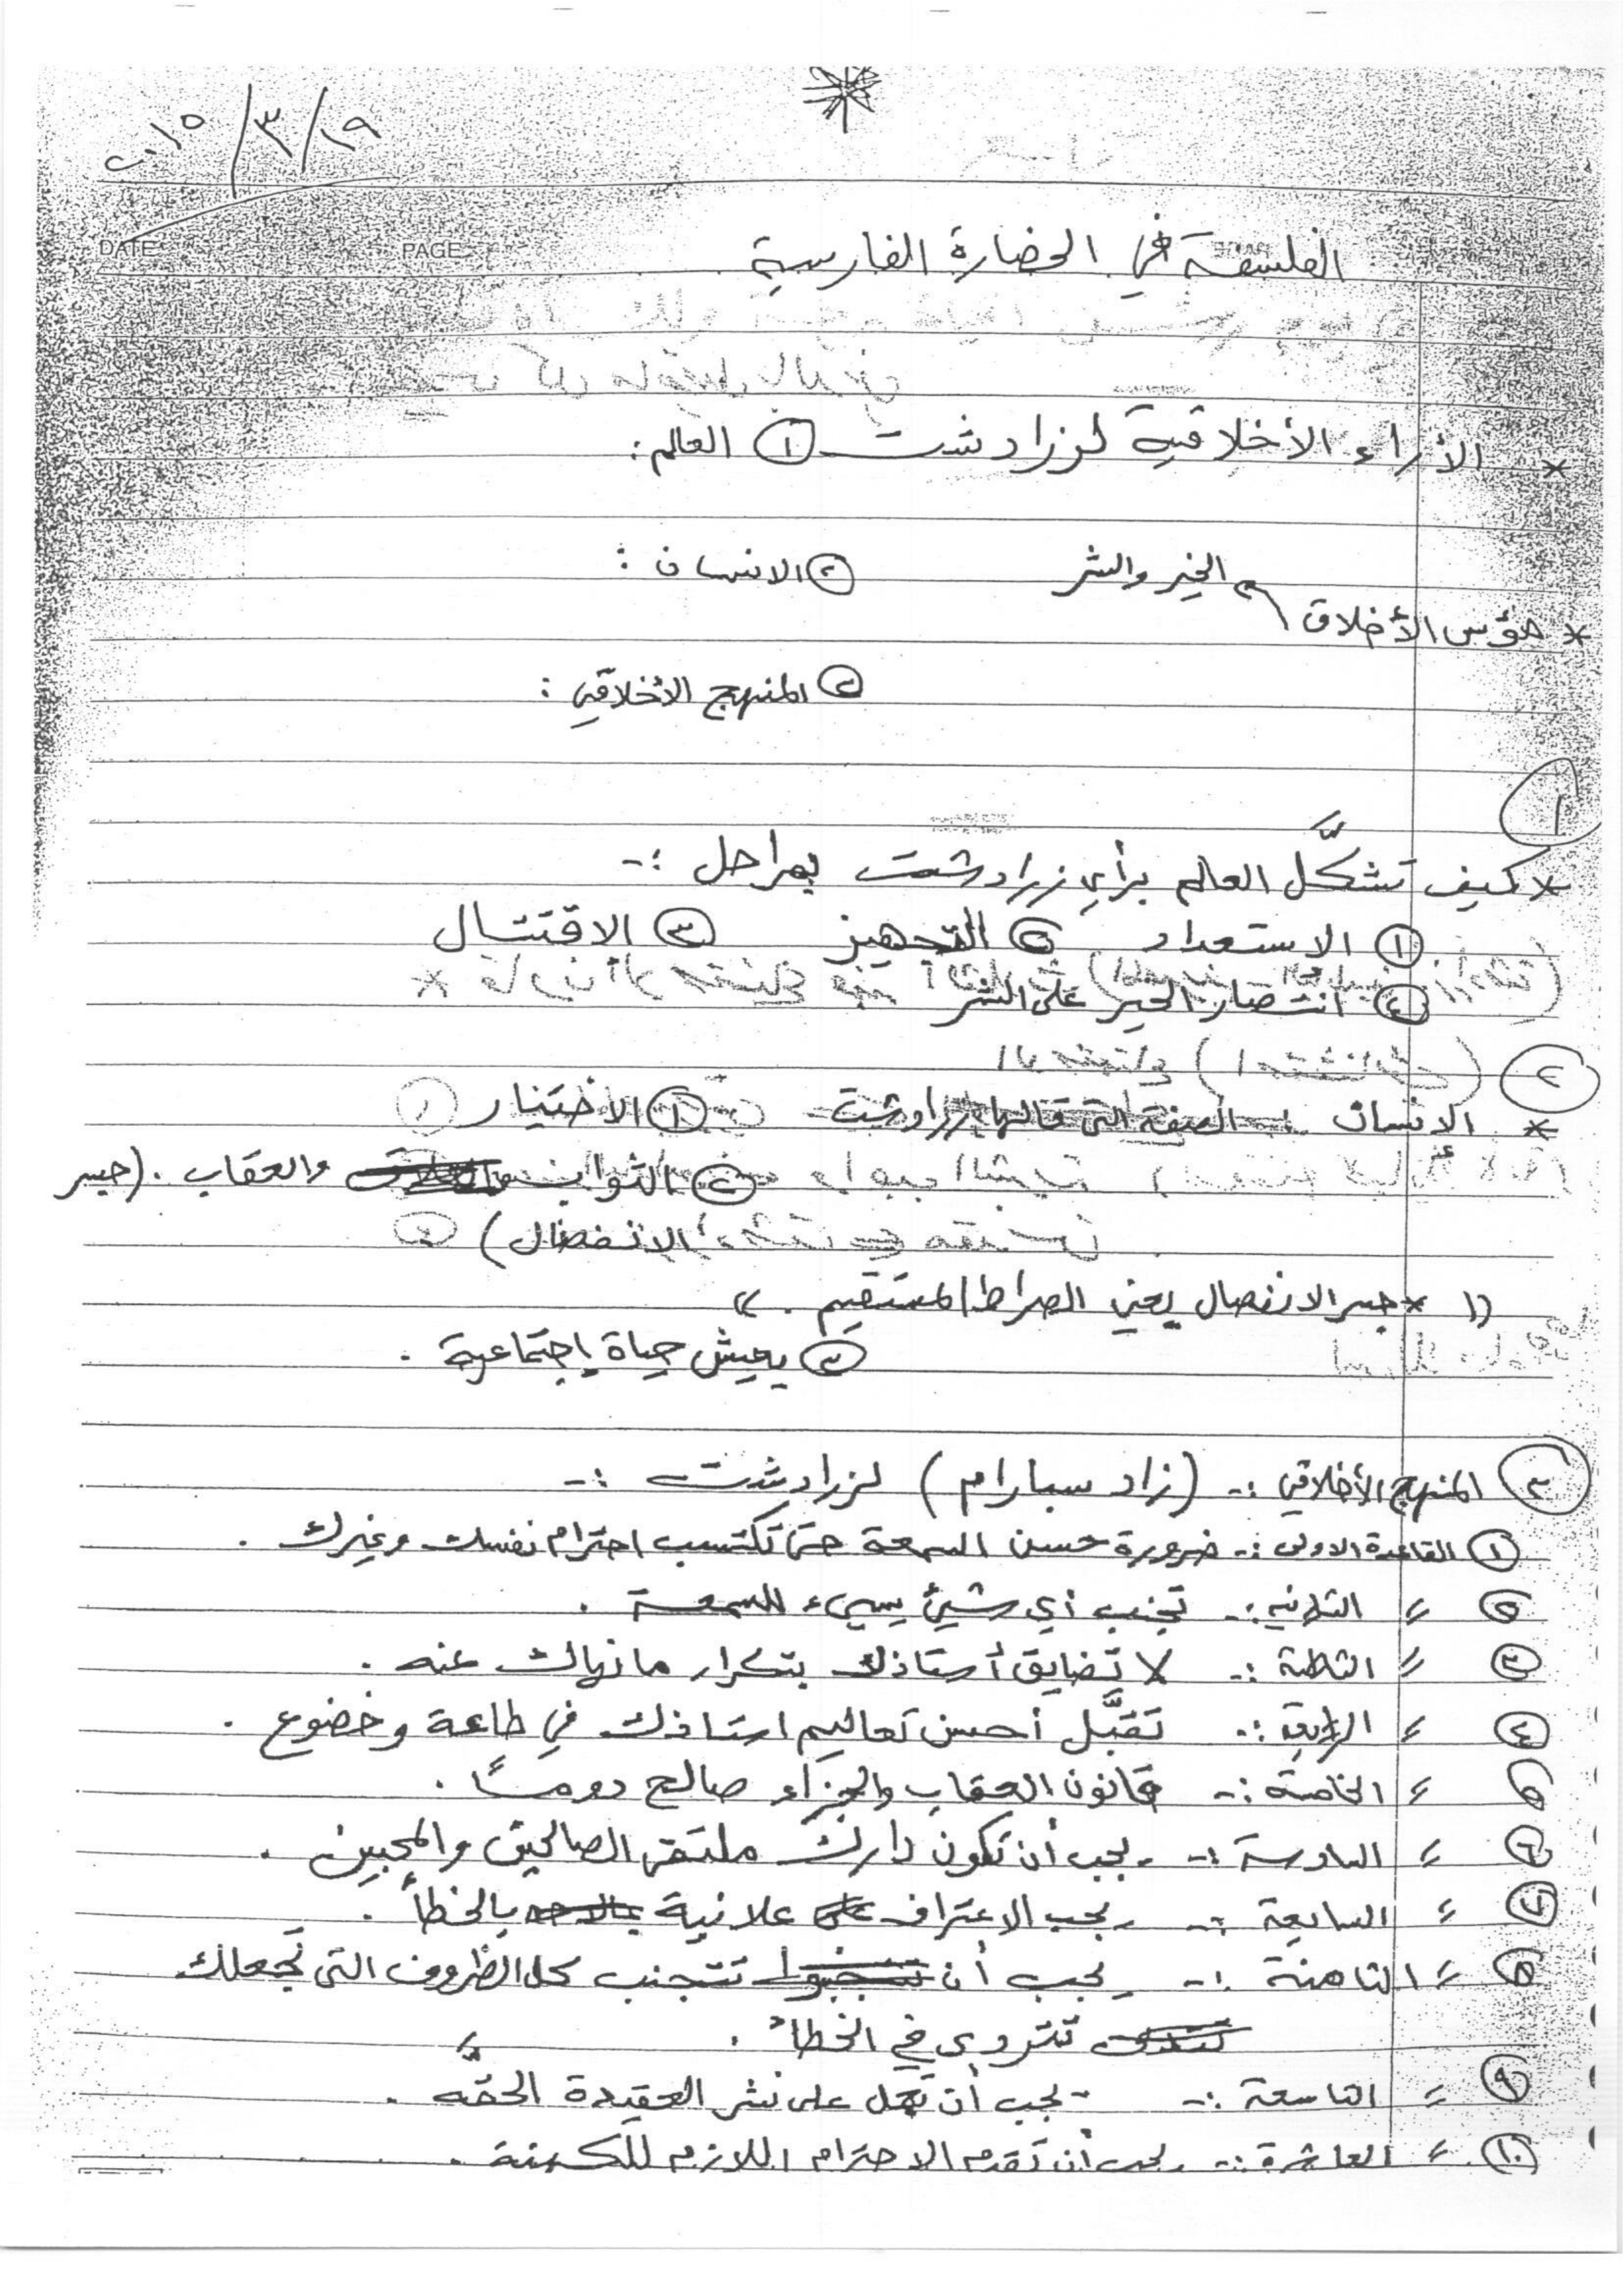 ٢٠١٥/٣/١٩
DATE PAGE
الفلسفة في الحضارة الفارسية
* الأراء الأخلاقية لزرادشت ① العالم:
الخير والشر ② الانسان :
* مؤس الأخلاق
③ المنهج الأخلاقي :
①
* كيف تشكَّل العالم برأي زرادشت بمراحل :-
① الاستعداد ② التجهيز ③ الاقتتال
④ انتصار الخير على الشر
②
* الإنسان :- الصفة التي قالها زرادشت ① الأختيار
② الثواب والعقاب . (جسر
الانفصال)
(( * جسر الانفصال يعني الصراط المستقيم . ))
③ يعيش حياة إجتماعية .
③ المنهج الأخلاقي :- (زاد سبارام) لزرادشت :-
① القاعدة الاولى :- ضرورة حسن السمعة حتى تكتسب احترام نفسك وغيرك .
② // الثانيه :- تجنب أي شيئ يسيء للسمعة .
③ // الثالثة :- لا تضايق أستاذك بتكرار ما نهاك عنه .
④ // الرابعة :- تقبَّل أحسن تعاليم استاذك في طاعة وخضوع .
⑤ // الخامسة :- قانون العقاب والجزاء صالح دومًا .
⑥ // السادسة :- يجب أن تكون دارك ملتقى الصالحين والمحبين .
⑦ // السابعة :- يجب الاعتراف علانية بالخطأ .
⑧ // الثامنة :- يجب أن تتجنب كل الظروف التي تجعلك
تتروى في الخطأ .
⑨ // التاسعة :- يجب أن تعمل على نشر العقيدة الحقَّه .
⑩ // العاشرة :- يجب أن تقدم الاحترام اللازم للكهنة .